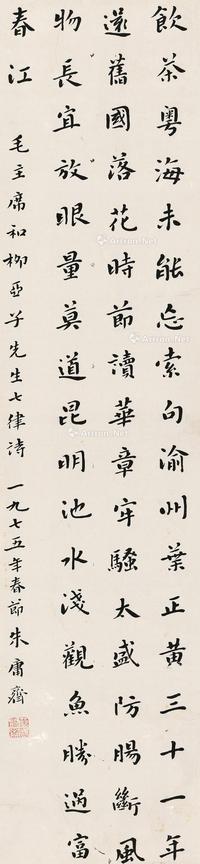 飲茶粵海未能忘索句渝州葉正黃三十一年
還舊國落花時節讀華章牢騷太盛防腸斷風
物長宜放眼量莫道昆明池水淺觀魚勝過富
春江
毛主席和柳亞子先生七律詩 一九七五年春節朱庸齋